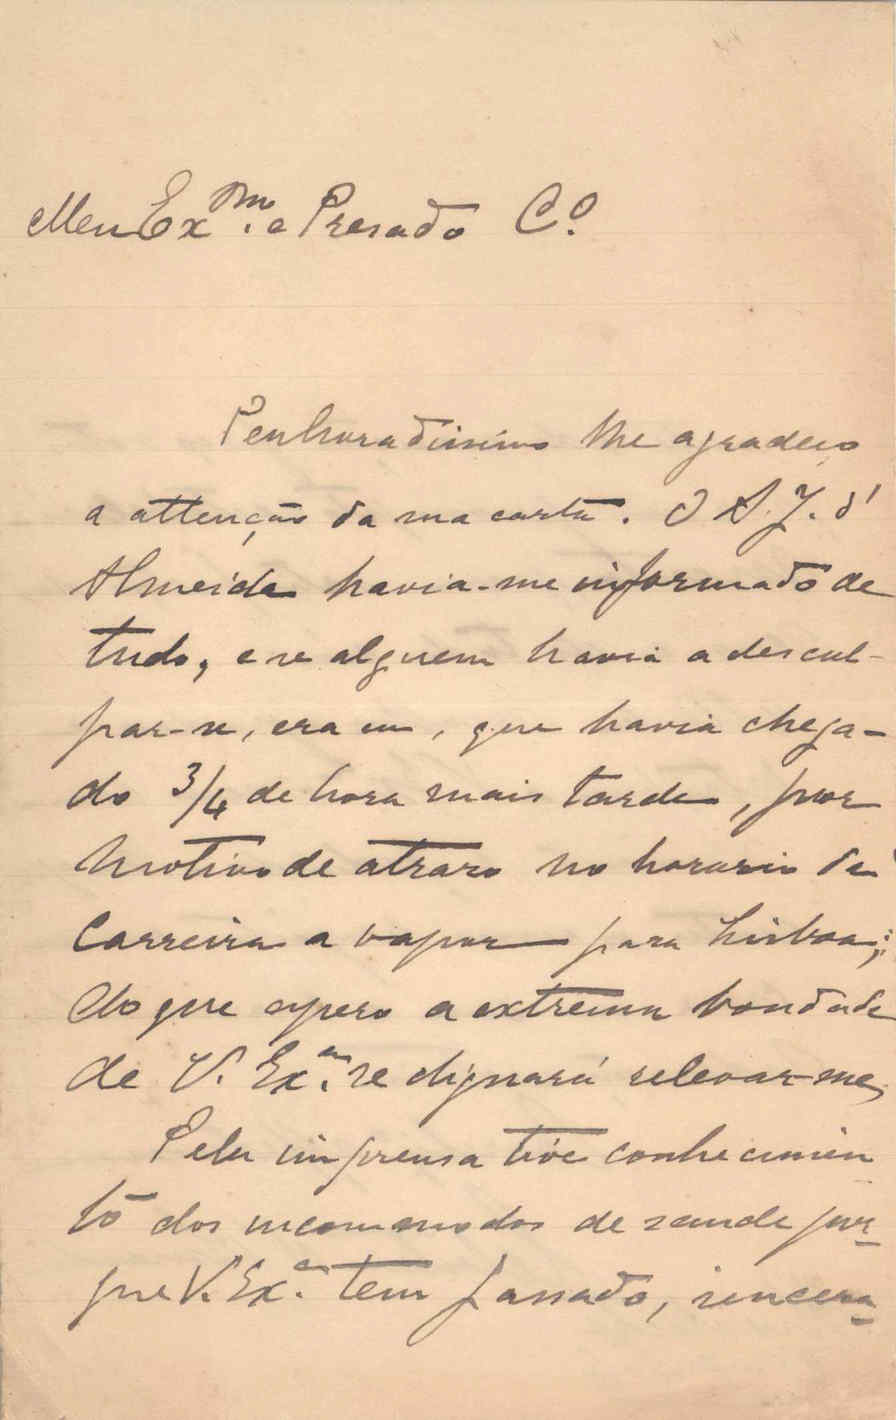 Meu Exmo. e Presado Cº.
Penhoradissimo lhe agradeço
a attenção da sua carta. O S. J. d'
Almeida havia-me informado de
tudo, e se alguem havia a descul-
par-se, era eu, que havia chega-
do 3/4 de hora mais tarde, por
motivo de atraso no horario da
Carreira a vapor para Lisboa;
do que espero a extrema bondade
de V. Exa. se dignará relevar-me,
Pela imprensa tive conhecimen
to dos incommodos de saude por-
que V. Exa. tem passado, sincera-